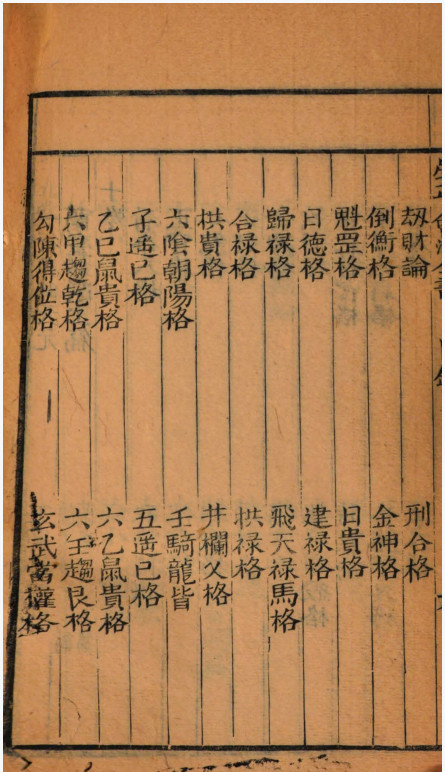 刼財論 刑合格
倒衝格 金神格
魁罡格 日貴格
日德格 建禄格
歸禄格 飛天禄馬格
合禄格 栱禄格
栱貴格 井欄乂格
六隂朝陽格 壬騎龍皆
子遙巳格 五遥巳格
乙巳鼠貴格 六乙鼠貴格
六甲趨乾格 六壬趨艮格
勾陳得位格 玄武當權格